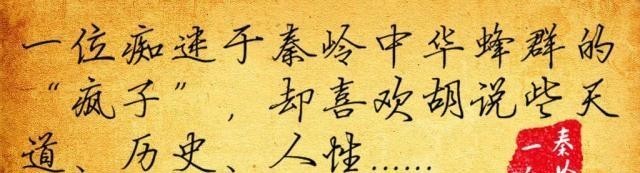 一位痴迷于秦岭中华蜂群的
“疯子”，却喜欢胡说些天
道、历史、人性……
秦
一